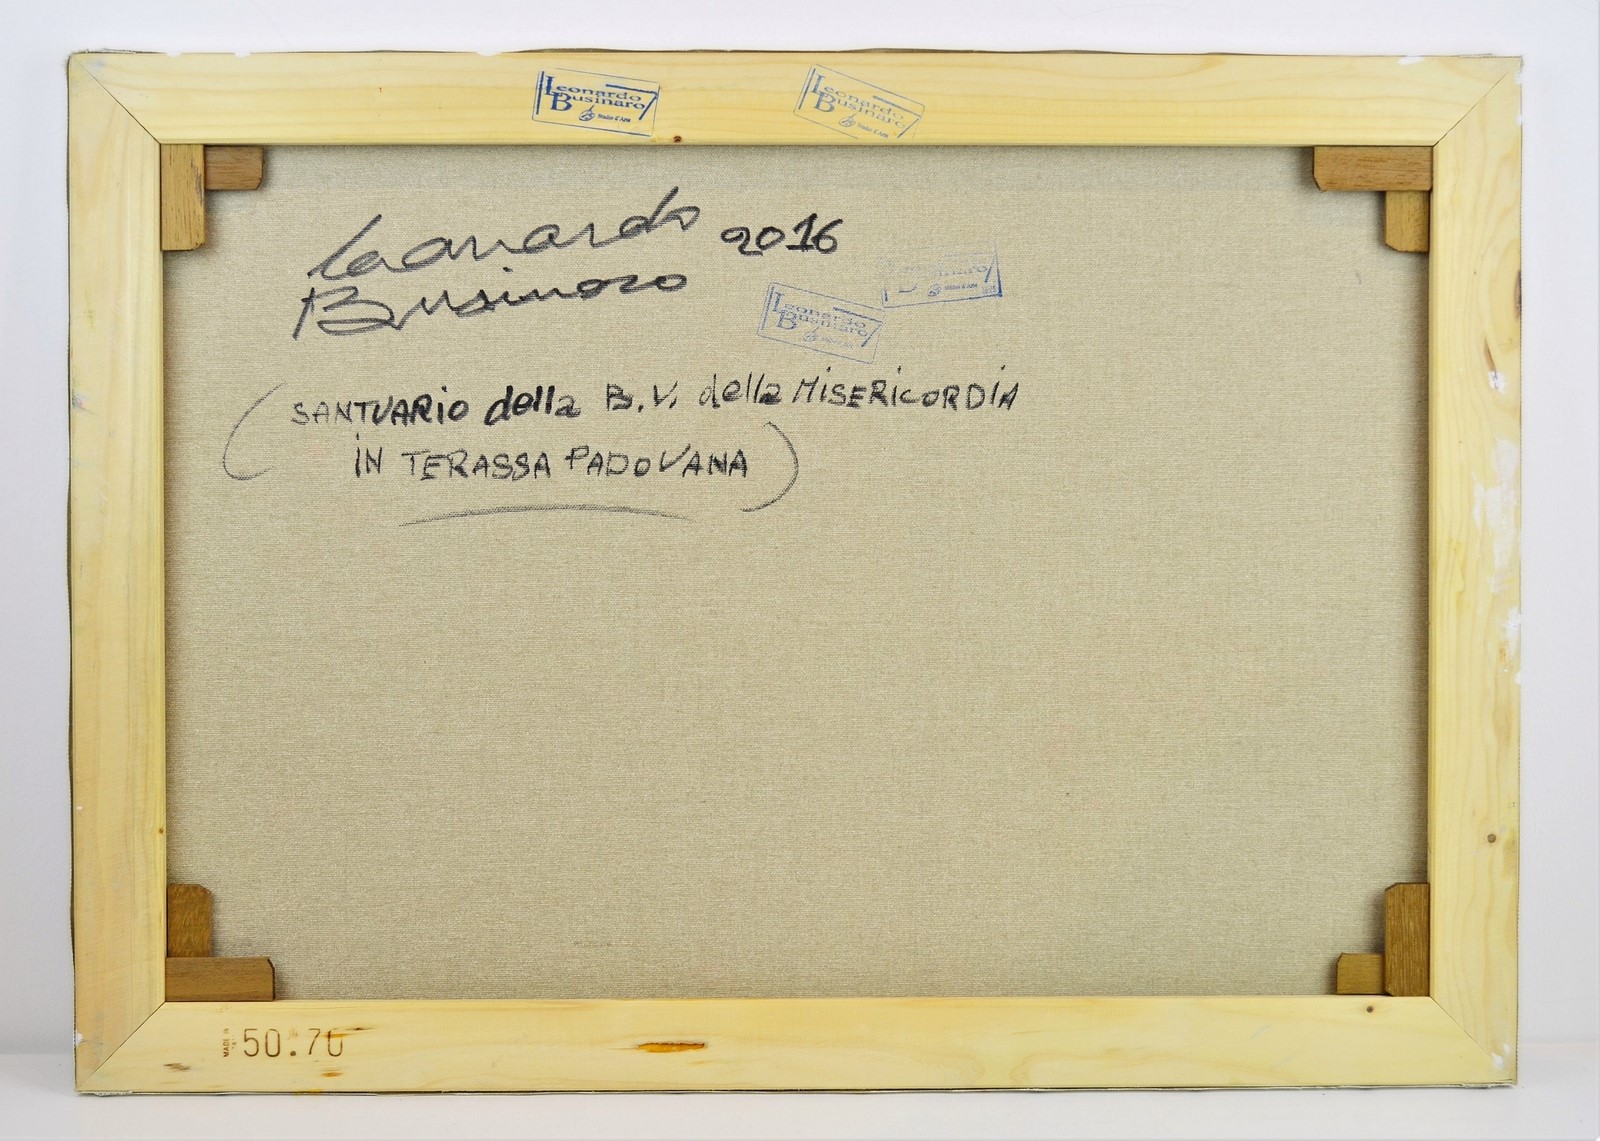 Leonardo
Businaro
Studio d'Arte
Leonardo
Businaro
Studio d'Arte
Leonardo 2016
Businaro
Businaro
Studio d'Arte
Leonardo
Businaro
Studio d'Arte
(SANTUARIO della B.V. della MISERICORDIA
IN TERASSA PADOVANA)
MADE IN
50.70